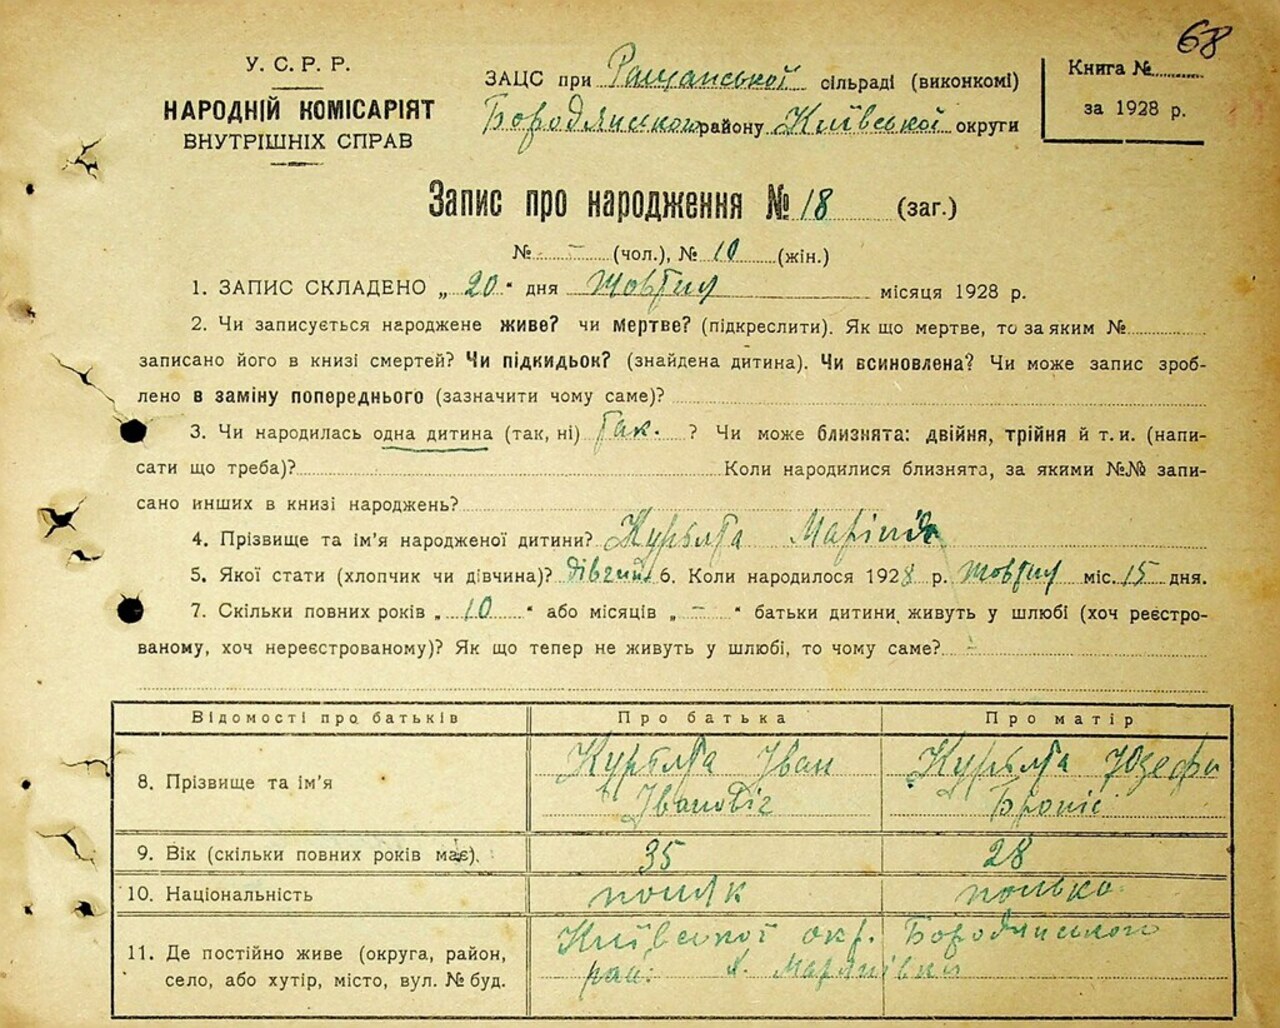 68
У. С. Р. Р.
НАРОДНІЙ КОМІСАРІЯТ
ВНУТРІШНІХ СПРАВ
ЗАЦС при Ращанської сільраді (виконкомі)
Бородянського району Київської округи
Книга №
за 1928 р.
Запис про народження № 18 (заг.)
№ - (чол.), № 10 (жін.)
1. ЗАПИС СКЛАДЕНО „ 20 " дня Жовтня місяця 1928 р.
2. Чи записується народжене живе? чи мертве? (підкреслити). Як що мертве, то за яким №
записано його в книзі смертей? Чи підкидьок? (знайдена дитина). Чи всиновлена? Чи може запис зроб-
лено в заміну попереднього (зазначити чому саме)?
3. Чи народилась одна дитина (так, ні) Так. ? Чи може близнята: двійня, трійня й т. и. (напи-
сати що треба)? Коли народилися близнята, за якими №№ запи-
сано инших в книзі народжень?
4. Прізвище та ім'я народженої дитини?
5. Якої стати (хлопчик чи дівчина)? дівчин. 6. Коли народилося 1928 р. Жовтня міс. 15 дня.
7. Скільки повних років „ 10 " або місяців „ - " батьки дитини живуть у шлюбі (хоч реєстро-
ваному, хоч нереєстрованому)? Як що тепер не живуть у шлюбі, то чому саме? -
Відомості про батьків Про батька Про матір
8. Прізвище та ім'я Іван Юзефа
Іванович Броніс
9. Вік (скільки повних років має). 35 28
10. Національність поляк полька
11. Де постійно живе (округа, район, Київської окр. Бородянського
село, або хутір, місто, вул. № буд. рай. х. Мар'янівка